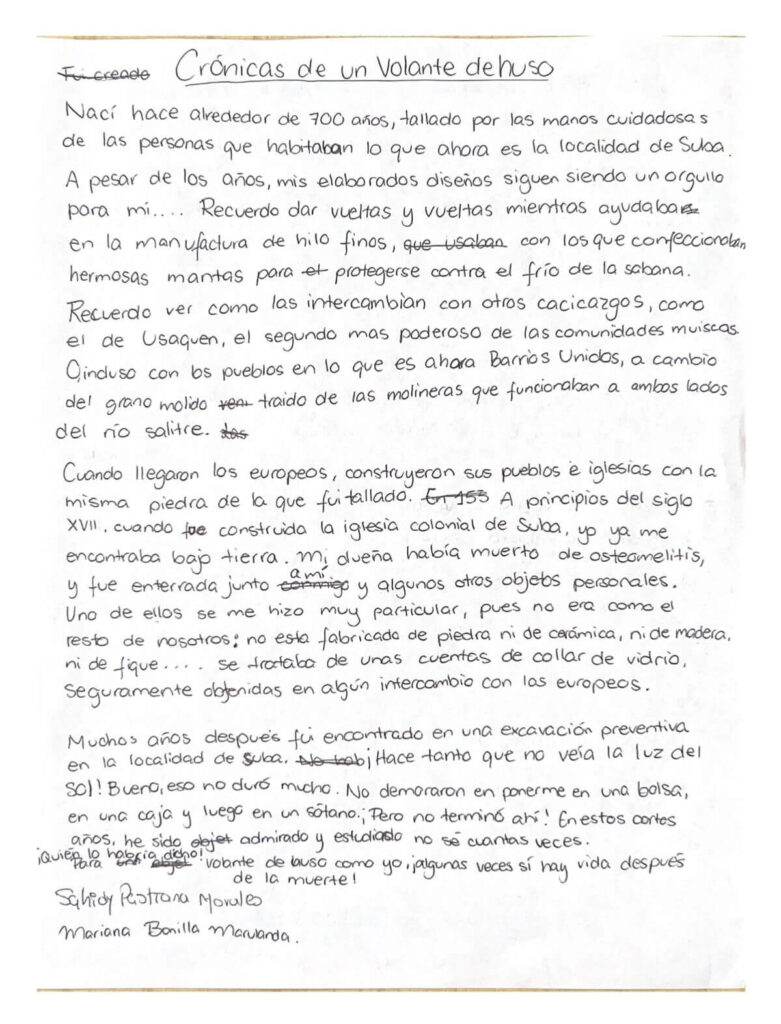 Fui creado Crónicas de un Volante de huso
Nací hace alrededor de 700 años, tallado por las manos cuidadosas
de las personas que habitaban lo que ahora es la localidad de Suba.
A pesar de los años, mis elaborados diseños siguen siendo un orgullo
para mi.... Recuerdo dar vueltas y vueltas mientras ayudaba
en la manufactura de hilo finos, que usaban con los que confeccionaban
hermosas mantas para el protegerse contra el frío de la sabana.
Recuerdo ver como las intercambian con otros cacicazgos, como
el de Usaquen, el segundo mas poderoso de las comunidades muiscas.
O incluso con los pueblos en lo que es ahora Barrios Unidos, a cambio
del grano molido ven traido de las molineras que funcionaban a ambos lados
del río salitre. las
Cuando llegaron los europeos, construyeron sus pueblos e iglesias con la
misma piedra de la que fui tallado. En 155 A principios del siglo
XVII. cuando fue construida la iglesia colonial de Suba, yo ya me
encontraba bajo tierra. Mi dueña había muerto de osteomelitis,
y fue enterrada junto conmigo a mí y algunos otros objetos personales.
Uno de ellos se me hizo muy particular, pues no era como el
resto de nosotros: no esta fabricado de piedra ni de cerámica, ni de madera,
ni de fique.... se trataba de unas cuentas de collar de vidrio,
seguramente obtenidas en algún intercambio con los europeos.
Muchos años después fui encontrado en una excavación preventiva
en la localidad de Suba. No hab ¡Hace tanto que no veía la luz del
sol! Bueno, eso no duró mucho. No demoraron en ponerme en una bolsa,
en una caja y luego en un sótano. ¡Pero no terminó ahí! En estos cortos
años, he sido objet admirado y estudiado no sé cuantas veces.
¡Quién lo habría dicho!
Para un objet volante de huso como yo, ¡algunas veces sí hay vida después
de la muerte!
Pastrana Morales
Mariana Bonilla